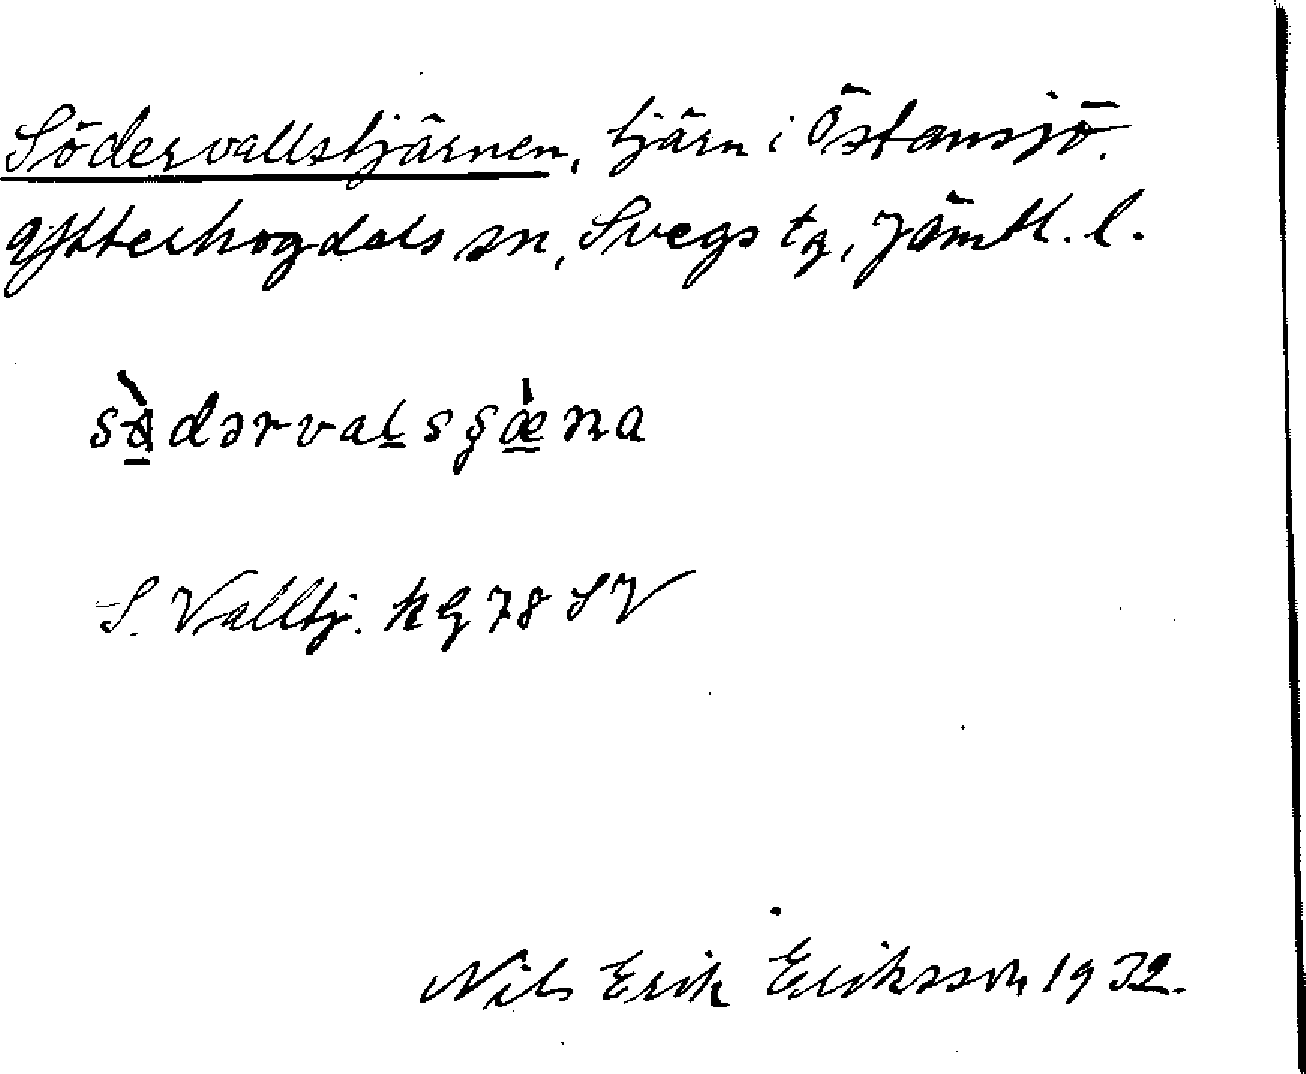 Södervallstjärnen, tjärn i Östansjö.
Ytterhogdals sn, Svegs tg, Jämtl. l.
sǿ̀dərvaḻsʂæ̱̀na
S. Valltj. kg 78 SV
Nils Erik Eriksson 1932.